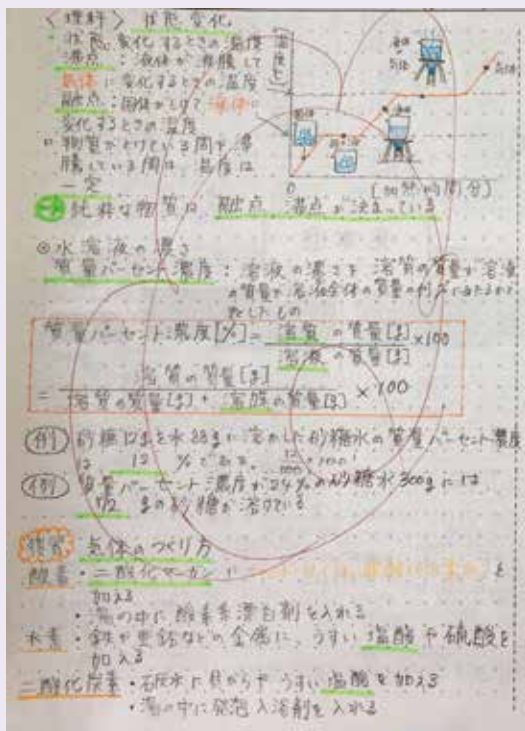 〈理解〉 状態変化
・状態変化するときの温度
沸点：液体が沸騰して
気体に変化するときの温度
融点：固体がとけて液体に
変化するときの温度
物質がとけている間や沸
騰している間は、温度は
一定
温度
液体
気体
固体
0
[加熱時間分]
→純粋な物質は 融点、沸点が決まっている
◎水溶液の濃さ
質量パーセント濃度：溶液の濃さを 溶質の質量が溶液
の質量が溶液全体の質量の何%にあたるか
表したもの
質量パーセント濃度[%]=溶質の質量[g]/溶液の質量[g]×100
=溶質の質量[g]/溶質の質量[g]+溶媒の質量[g]×100
(例) 砂糖12gを水88gに溶かした砂糖水の質量パーセント濃度
は 12 %である。
(例) 質量パーセント濃度が24%の砂糖水300gには
72 gの砂糖が溶けている
気体のつくり方
酸素・二酸化マンガンに を
加える
・湯の中に酸素系漂白剤を入れる
水素・鉄や亜鉛などの金属に、うすい塩酸や硫酸を
加える
二酸化炭素・石灰水に貝がらや うすい塩酸を加える
・湯の中に発泡入浴剤を入れる